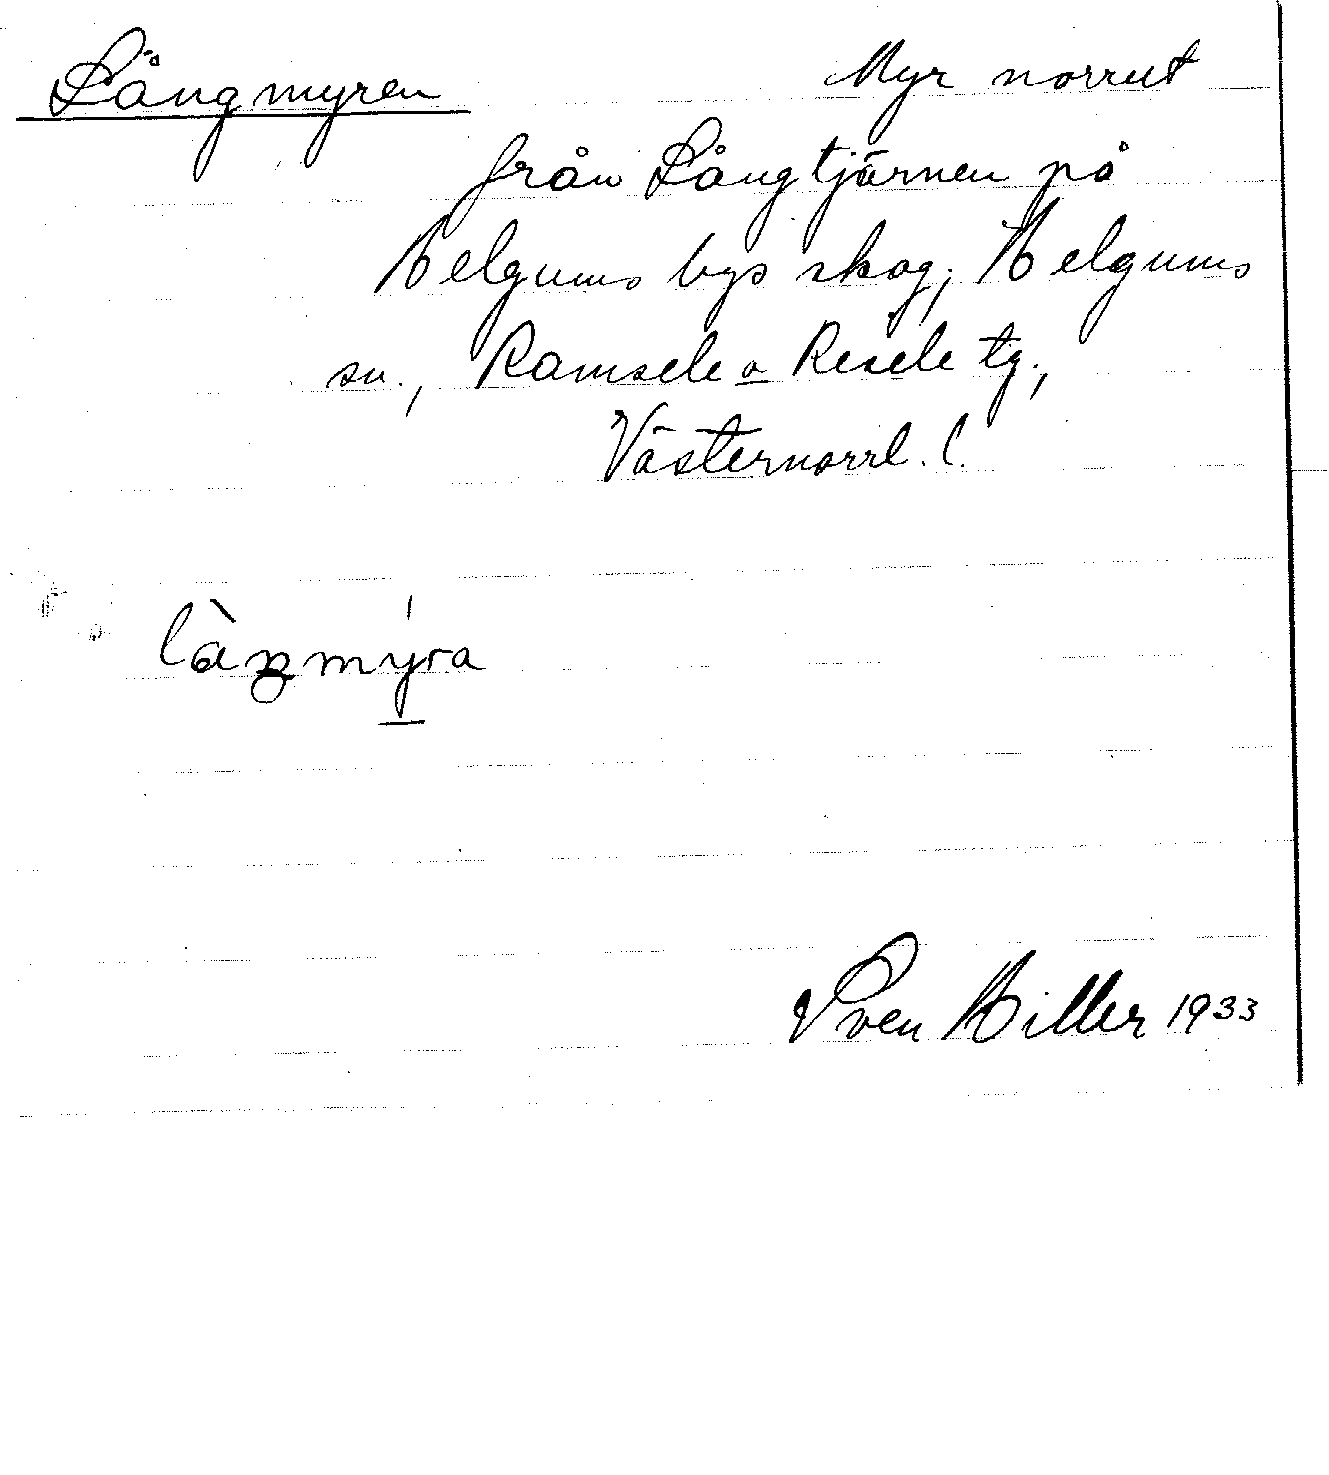 Långmyren Myr norrut
från Långtjärnen på
Helgums bys skog, Helgums
sn., Ramsele o Resele tg.,
Västernorrl. l.
Sven Hiller 1933